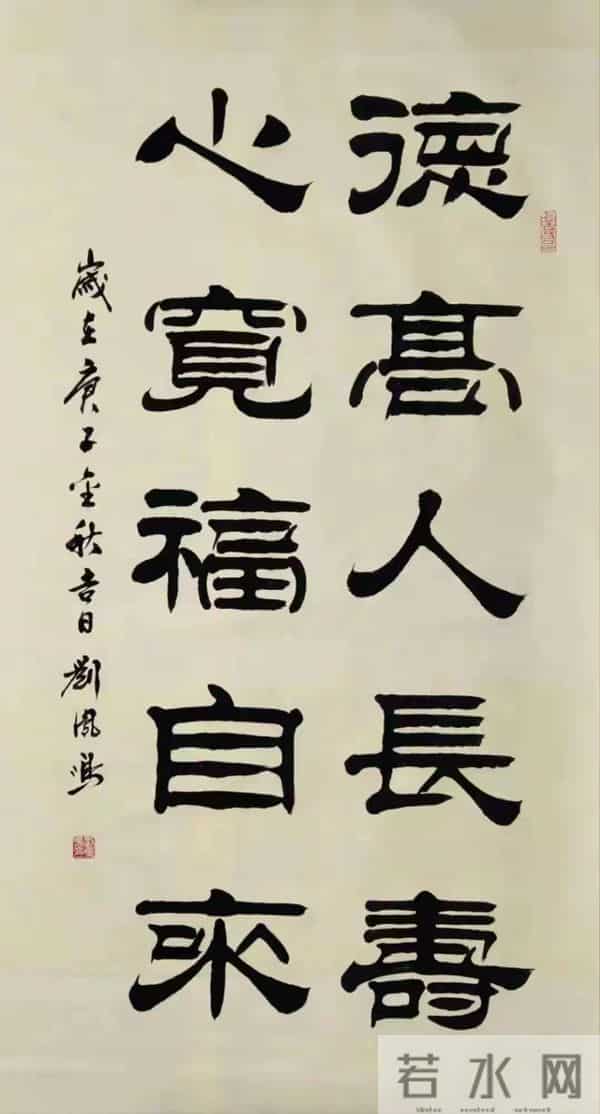 德高人長壽
心寬福自來
歲在庚子金秋吉日劉鳳
若水网